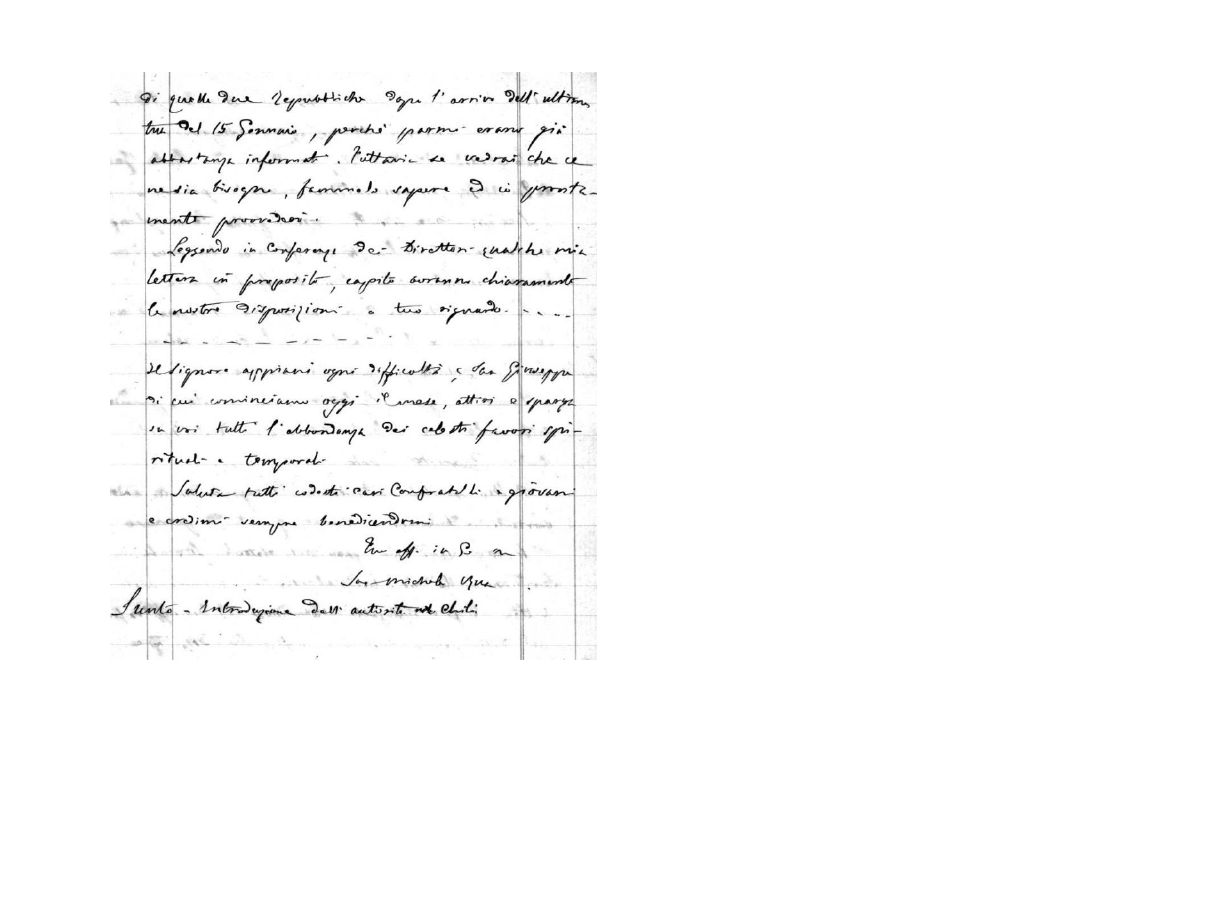 di quelle due Repubbliche dopo l'arrivo dell'ultima
tua del 15 Gennaio, perché parmi erano già
abbastanza informati. Tuttavia se vedrai che ce
ne sia bisogno, fammelo sapere ed io pronta-
mente provvederò.
Leggendo in Conferenza dei Direttori qualche mia
lettera in proposito, capito avranno chiaramente
le nostre disposizioni a tuo riguardo. - - - -
- - - - - - - - - -
Il Signore appiani ogni difficoltà e San Giuseppe
di cui cominciamo oggi il mese, attiri e sparga
su voi tutti l'abbondanza dei celesti favori spi-
rituali e temporali
Saluta tutti codesti cari Confratelli e giovani
e credimi sempre
Tuo aff. in G.
Sac. Michele Rua
Sunto - Introduzione dell'autorità nel Chilì